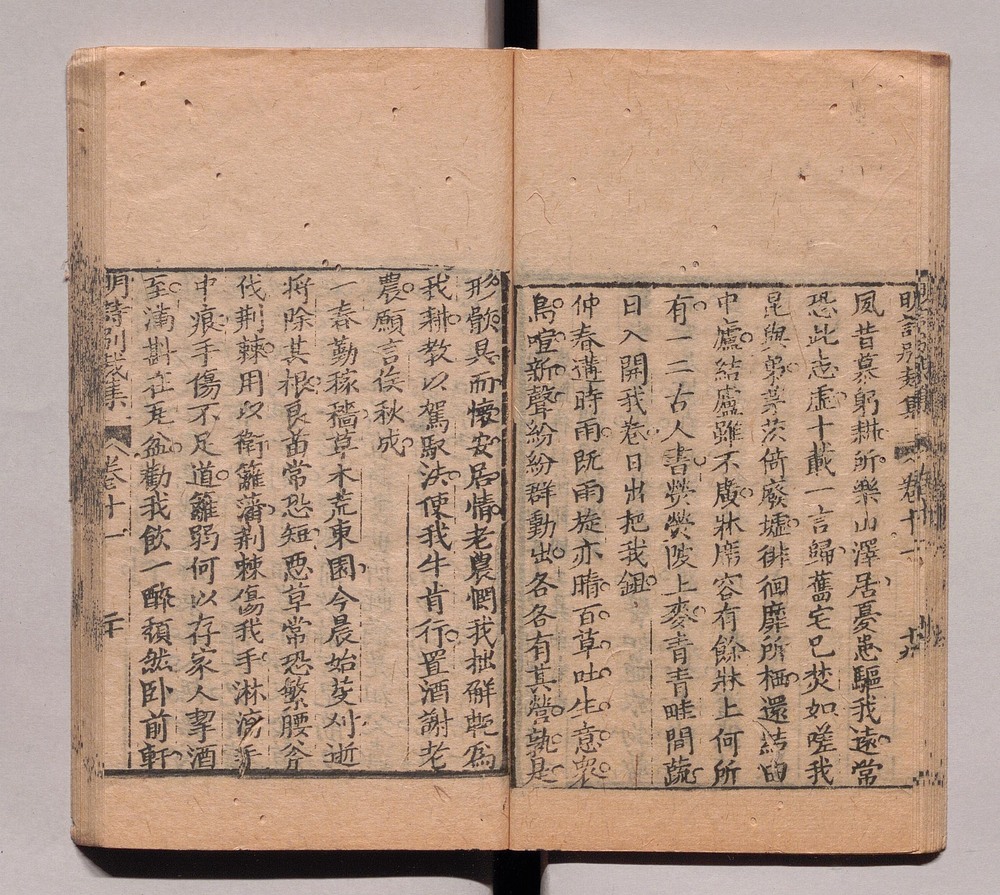 明詩別裁集 卷十一 十九
夙昔慕躬耕所樂山澤居憂患驅我遠常
恐此志虛十載一言歸舊宅已焚如嗟我
昆與弟茅茨倚廢墟徘徊靡所栖還結田
中廬結廬雖不廣牀席容有餘牀上何所
有一二古人書熒熒陂上麥青青畦間蔬
日入開我卷日出把我鉏
仲春遘時雨既雨旋亦晴百草吐生意眾
鳥喧新聲紛紛群動出各各有其營孰是
形骸具而懷安居情老農憫我拙解軛為
我耕教以駕馭法使我牛肯行置酒謝老
農願言俟秋成
一春勤稼穡草木荒東園今晨始芟刈逝
將除其根良苗常恐短惡草常恐繁腰斧
伐荆棘用以衛籬藩荆棘傷我手淋漓手
中痕手傷不足道籬弱何以存家人挈酒
至滿斟在瓦盆勸我飲一醉頹然卧前軒
明詩別裁集 卷十一 二十